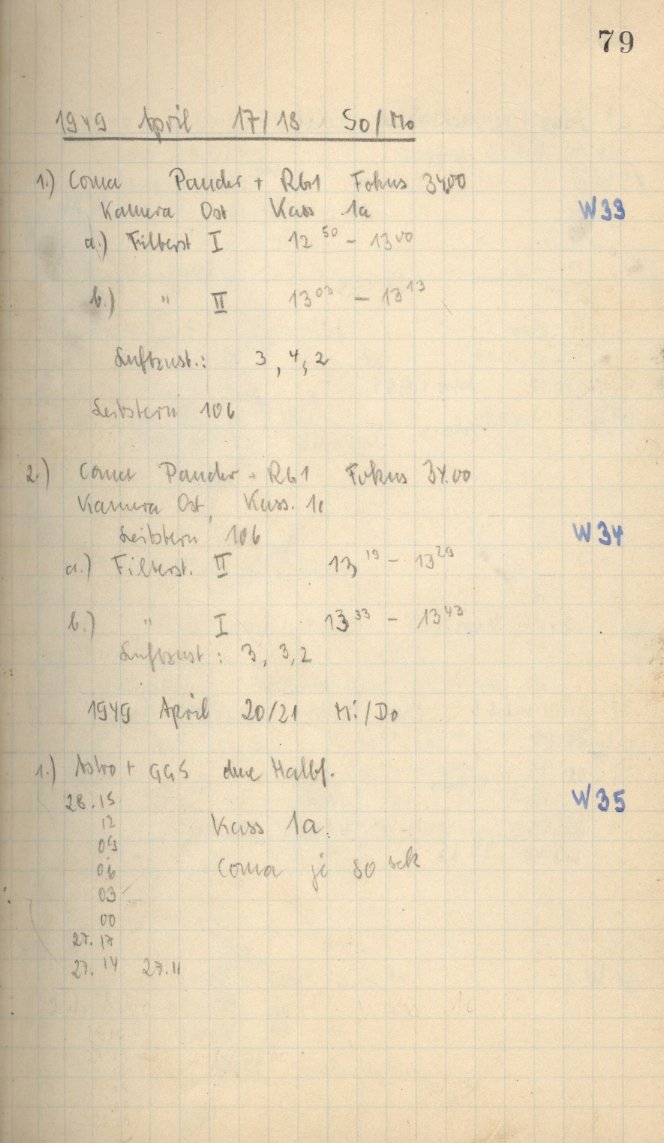 79
1949 April 17/18 So/Mo
1.) Coma Pander + RG1 Fokus 34,00
Kamera Ost Kass 1a
W33
a.) Filterst I 12 50 - 13 00
b.) " II 13 03 - 13 13
Luftzust.: 3, 4, 2
Leitstern 106
2.) Coma Pander + RG1 Fokus 34.00
Kamera Ost, Kass. 1c
Leitstern 106
W34
a.) Filterst. II 13 19 - 13 29
b.) " I 13 33 - 13 43
Luftzust: 3, 3, 2
1949 April 20/21 Mi/Do
1.) Astro + GG5 ohne Halbf.
28.15
W35
12 Kass 1a.
09
06 Coma je 80 sek
03
00
27.17
27.14 27.11